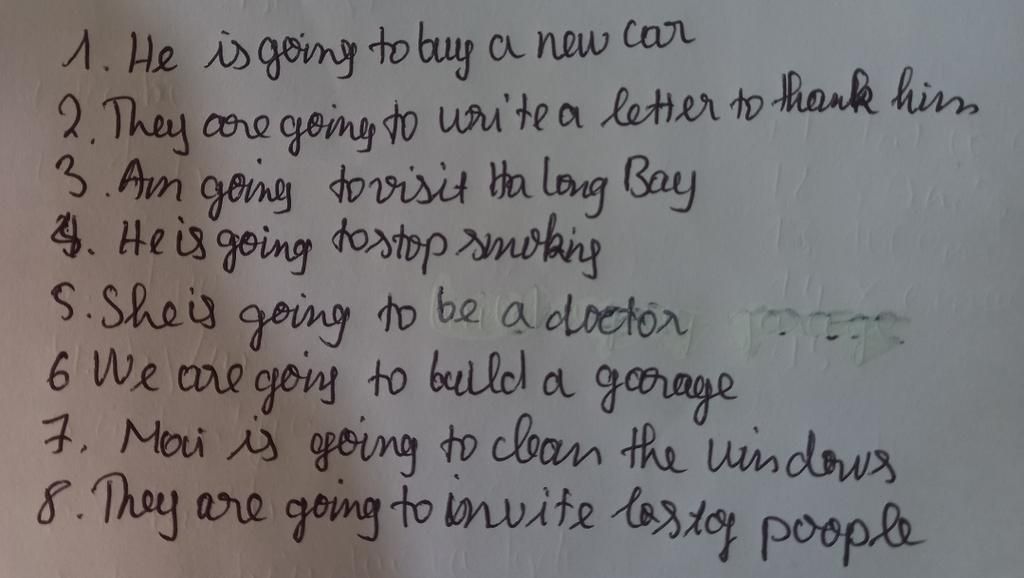 1. He is going to buy a new car
2. They are going to write a letter to thank him
3. Am going to visit Ha Long Bay
4. He is going to stop smoking
5. She is going to be a doctor
6 We are going to build a garage
7. Mai is going to clean the windows
8. They are going to invite people